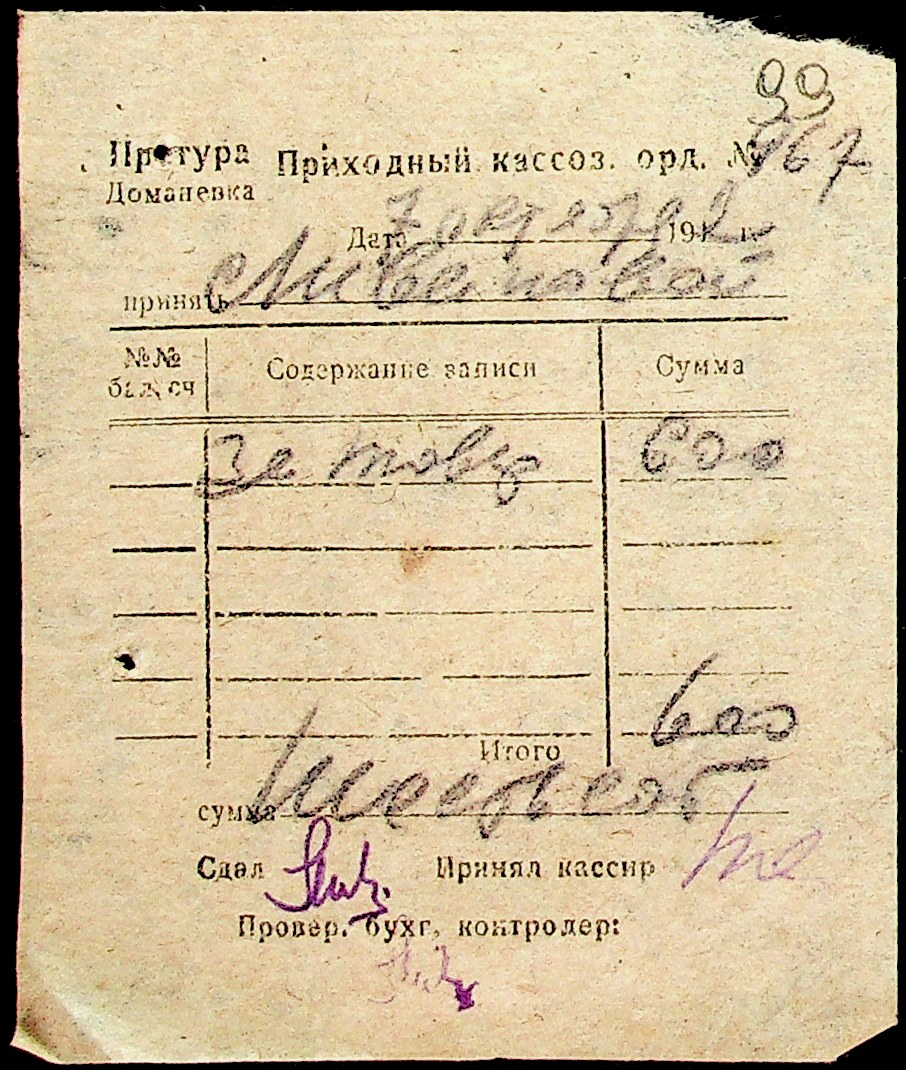 99
Претура Приходный кассов. орд. № 167
Доманевка
Дата 7 октября 1942 г.
принять с
№№ бал. сч Содержание записи Сумма
За товар 600
Итого 600
сумма Шестьсот
Сдал Принял кассир
Провер. бухг, контролер: